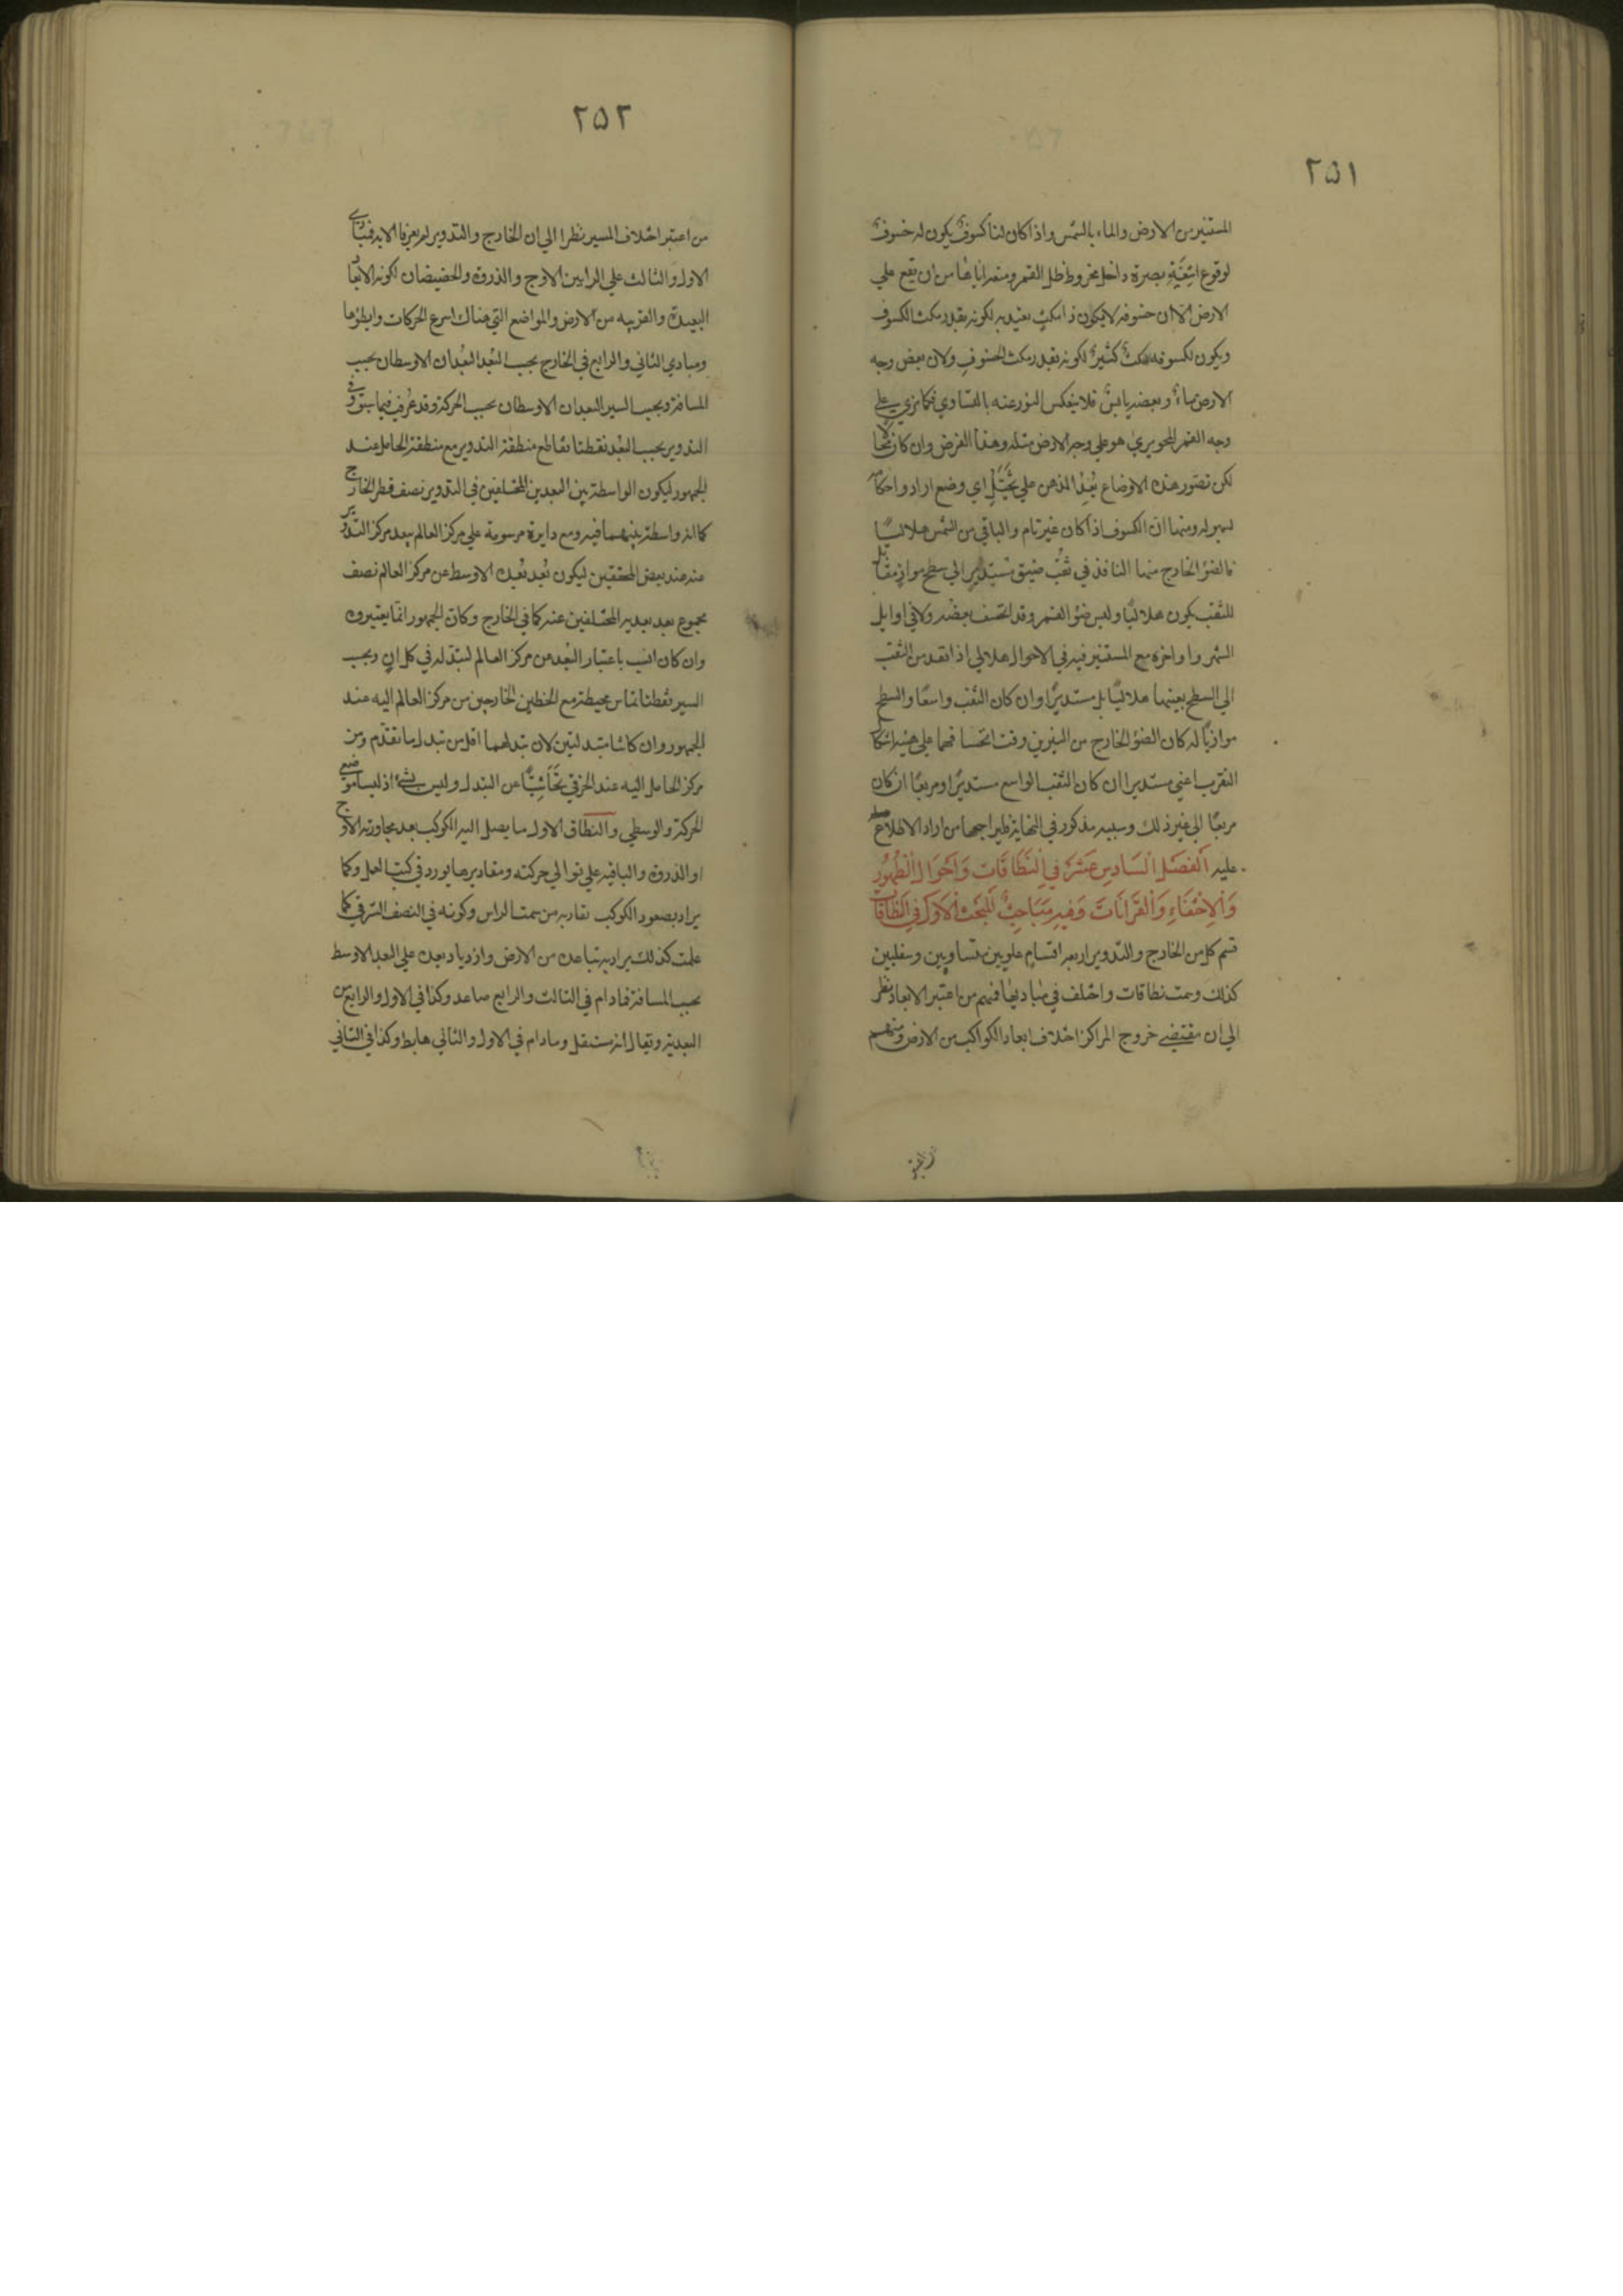 ٢٥١
المستنير من الارض والماء بالشمس واذا كان لنا كسوف يكون له خسوف
لوقوع اشعة بصره داخل مخروط ظل القمر ومنعه اياها من ان تقع علي
الارض الا ان خسوفه لا يكون ذا مكث يعتد به لكونه بقدر مكث الكسوف
ويكون لكسوفه مكث كثير لكونه بقدر مكث الخسوف ولان بعض وجه
الارض ماء وبعضه يابس فلا ينعكس النور عنه بالتساوي فكما يري علي
وجه القمر المحو يري هو علي وجه الارض مثله وهذا الفرض وان كان محالا
لكن تصور هذه الاوضاع يعد الذهن علي تخيل اي وضع اراد واحكامه
بسهوله ومنها ان الكسوف اذا كان غير تام والباقي من الشمس هلاليا
فالضوء الخارج منها النافذ في ثقب ضيق مستدير الي سطح مواز مقابل
للثقب يكون هلاليا وليس ضوء القمر وقد انخسف بعضه ولا في اوايل
الشهر واواخره مع المستنير فيه في الاحوال هلالي اذا نفد من الثقب
الي السطح بعينها هلاليا بل مستديرا وان كان الثقب واسعا والسطح
موازيا له كان الضوء الخارج من النيرين وقت انخسافهما علي هيئة اشكال
الثقب اعني مستديرا ان كان الثقب الواسع مستديرا ومربعا ان كان
مربعا الي غير ذلك وسببه مذكور في النهاية فليراجعها من اراد الاطلاع
عليه الفصل السادس عشر في النطاقات واحوال الظهور
والاختفاء والقرانات وفيه مباحث المبحث الاول في النطاقات
قسم كل من الخارج والتدوير اربعه اقسام علويين متساويين وسفليين
كذلك وسمت نطاقات واختلف في مباديها فمنهم من اعتبر الابعاد نظرا
الي ان مقتضي خروج المراكز اختلاف ابعاد الكواكب من الارض ومنهم
٢٥٢
من اعتبر اختلاف المسير نظرا الي ان الخارج والتدوير لم يعرفا الا به فمبادي
الاول والثالث علي الرايين الاوج والذروة والحضيضان لكونه الابعاد
البعيدة والقريبه من الارض والمواضع التي هناك اسرع الحركات وابطؤها
ومبادي الثاني والرابع في الخارج بحسب البعد البعدان الاوسطان بحسب
المسافة وبحسب السير البعدان الاوسطان بحسب الحركة وقد عرف فيما سبق وفي
التدوير بحسب البعد نقطتا تقاطع منطقة التدوير مع منطقة الحامل عند
الجمهور ليكون الواسطة بين البعدين المختلفين في التدوير نصف قطر الخارج
كما انه واسطة بينهما فيه ومع دايرة مرسومة علي مركز العالم ببعد مركز التدوير
منه عند بعض المحققين ليكون بعد بعده الاوسط عن مركز العالم نصف
مجموع بعد بعديه المختلفين عنه كما في الخارج وكان الجمهور انما يعتبروه
وان كان انسب باعتبار البعد من مركز العالم لتبدله في كل ان وبحسب
السير نقطتا تماس محيطه مع الخطين الخارجين من مركز العالم اليه عند
الجمهور وان كانتا متبدلتين لان تبدلهما اقل من تبدل ما تقدم ومن
مركز الحامل اليه عند الخرقي تحاشيا عن التبدل وليس بشيء اذ ليسا موضعي
الحركة والوسطي والنطاق الاول ما يصل اليه الكوكب بعد مجاوزته الاوج
او الذروة والباقيه علي توالي حركته ومقاديرها يورد في كتب العمل وكما
يراد بصعود الكوكب تقاربه من سمت الراس وكونه في النصف الشرقي كما
علمت كذلك يراد به تباعده من الارض وازدياد بعده علي البعد الاوسط
بحسب المسافة فما دام في الثالث والرابع صاعد وكذا في الاول والرابع من
البعدية ويقال انه مستقل وما دام في الاول والثاني هابط وكذا في الثاني